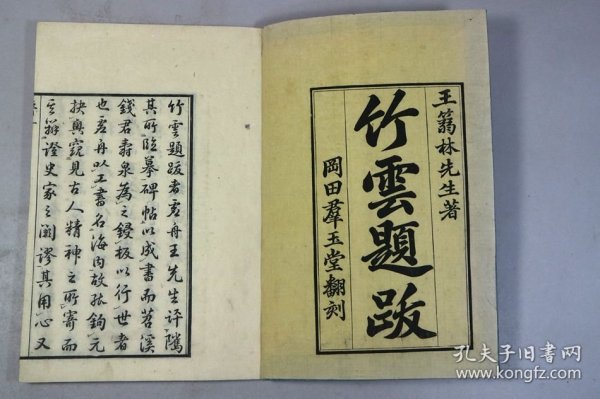 王篛林先生著
竹雲題跋
岡田羣玉堂翻刻
竹雲題跋者虛舟王先生評隲
其所臨摹碑帖以成書而苕溪
錢君壽泉為之鋟板以行世者
也虛舟以工書名海内故能鉤元
抉奧窺見古人精神之所寄而
辯證史家之闕謬其用心又
孔夫子旧书网
www.kongfz.com